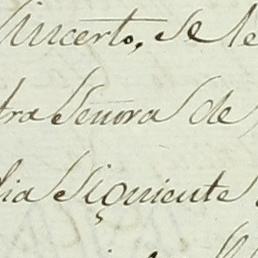 Sincerto, se le
tra Senora de
dia Siguiente